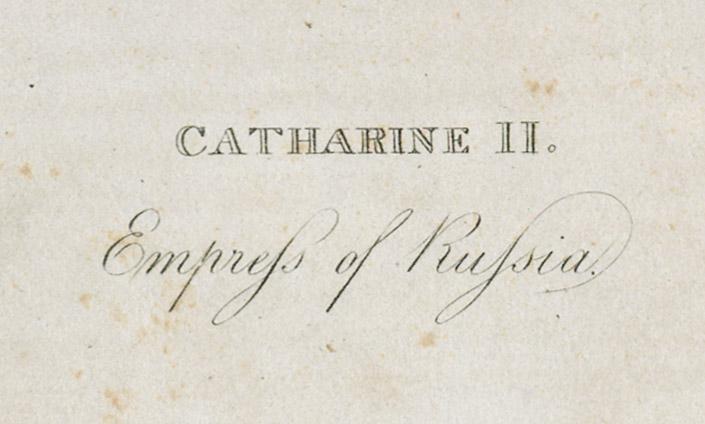 CATHARINE II.
Empreſs of Ruſsia.